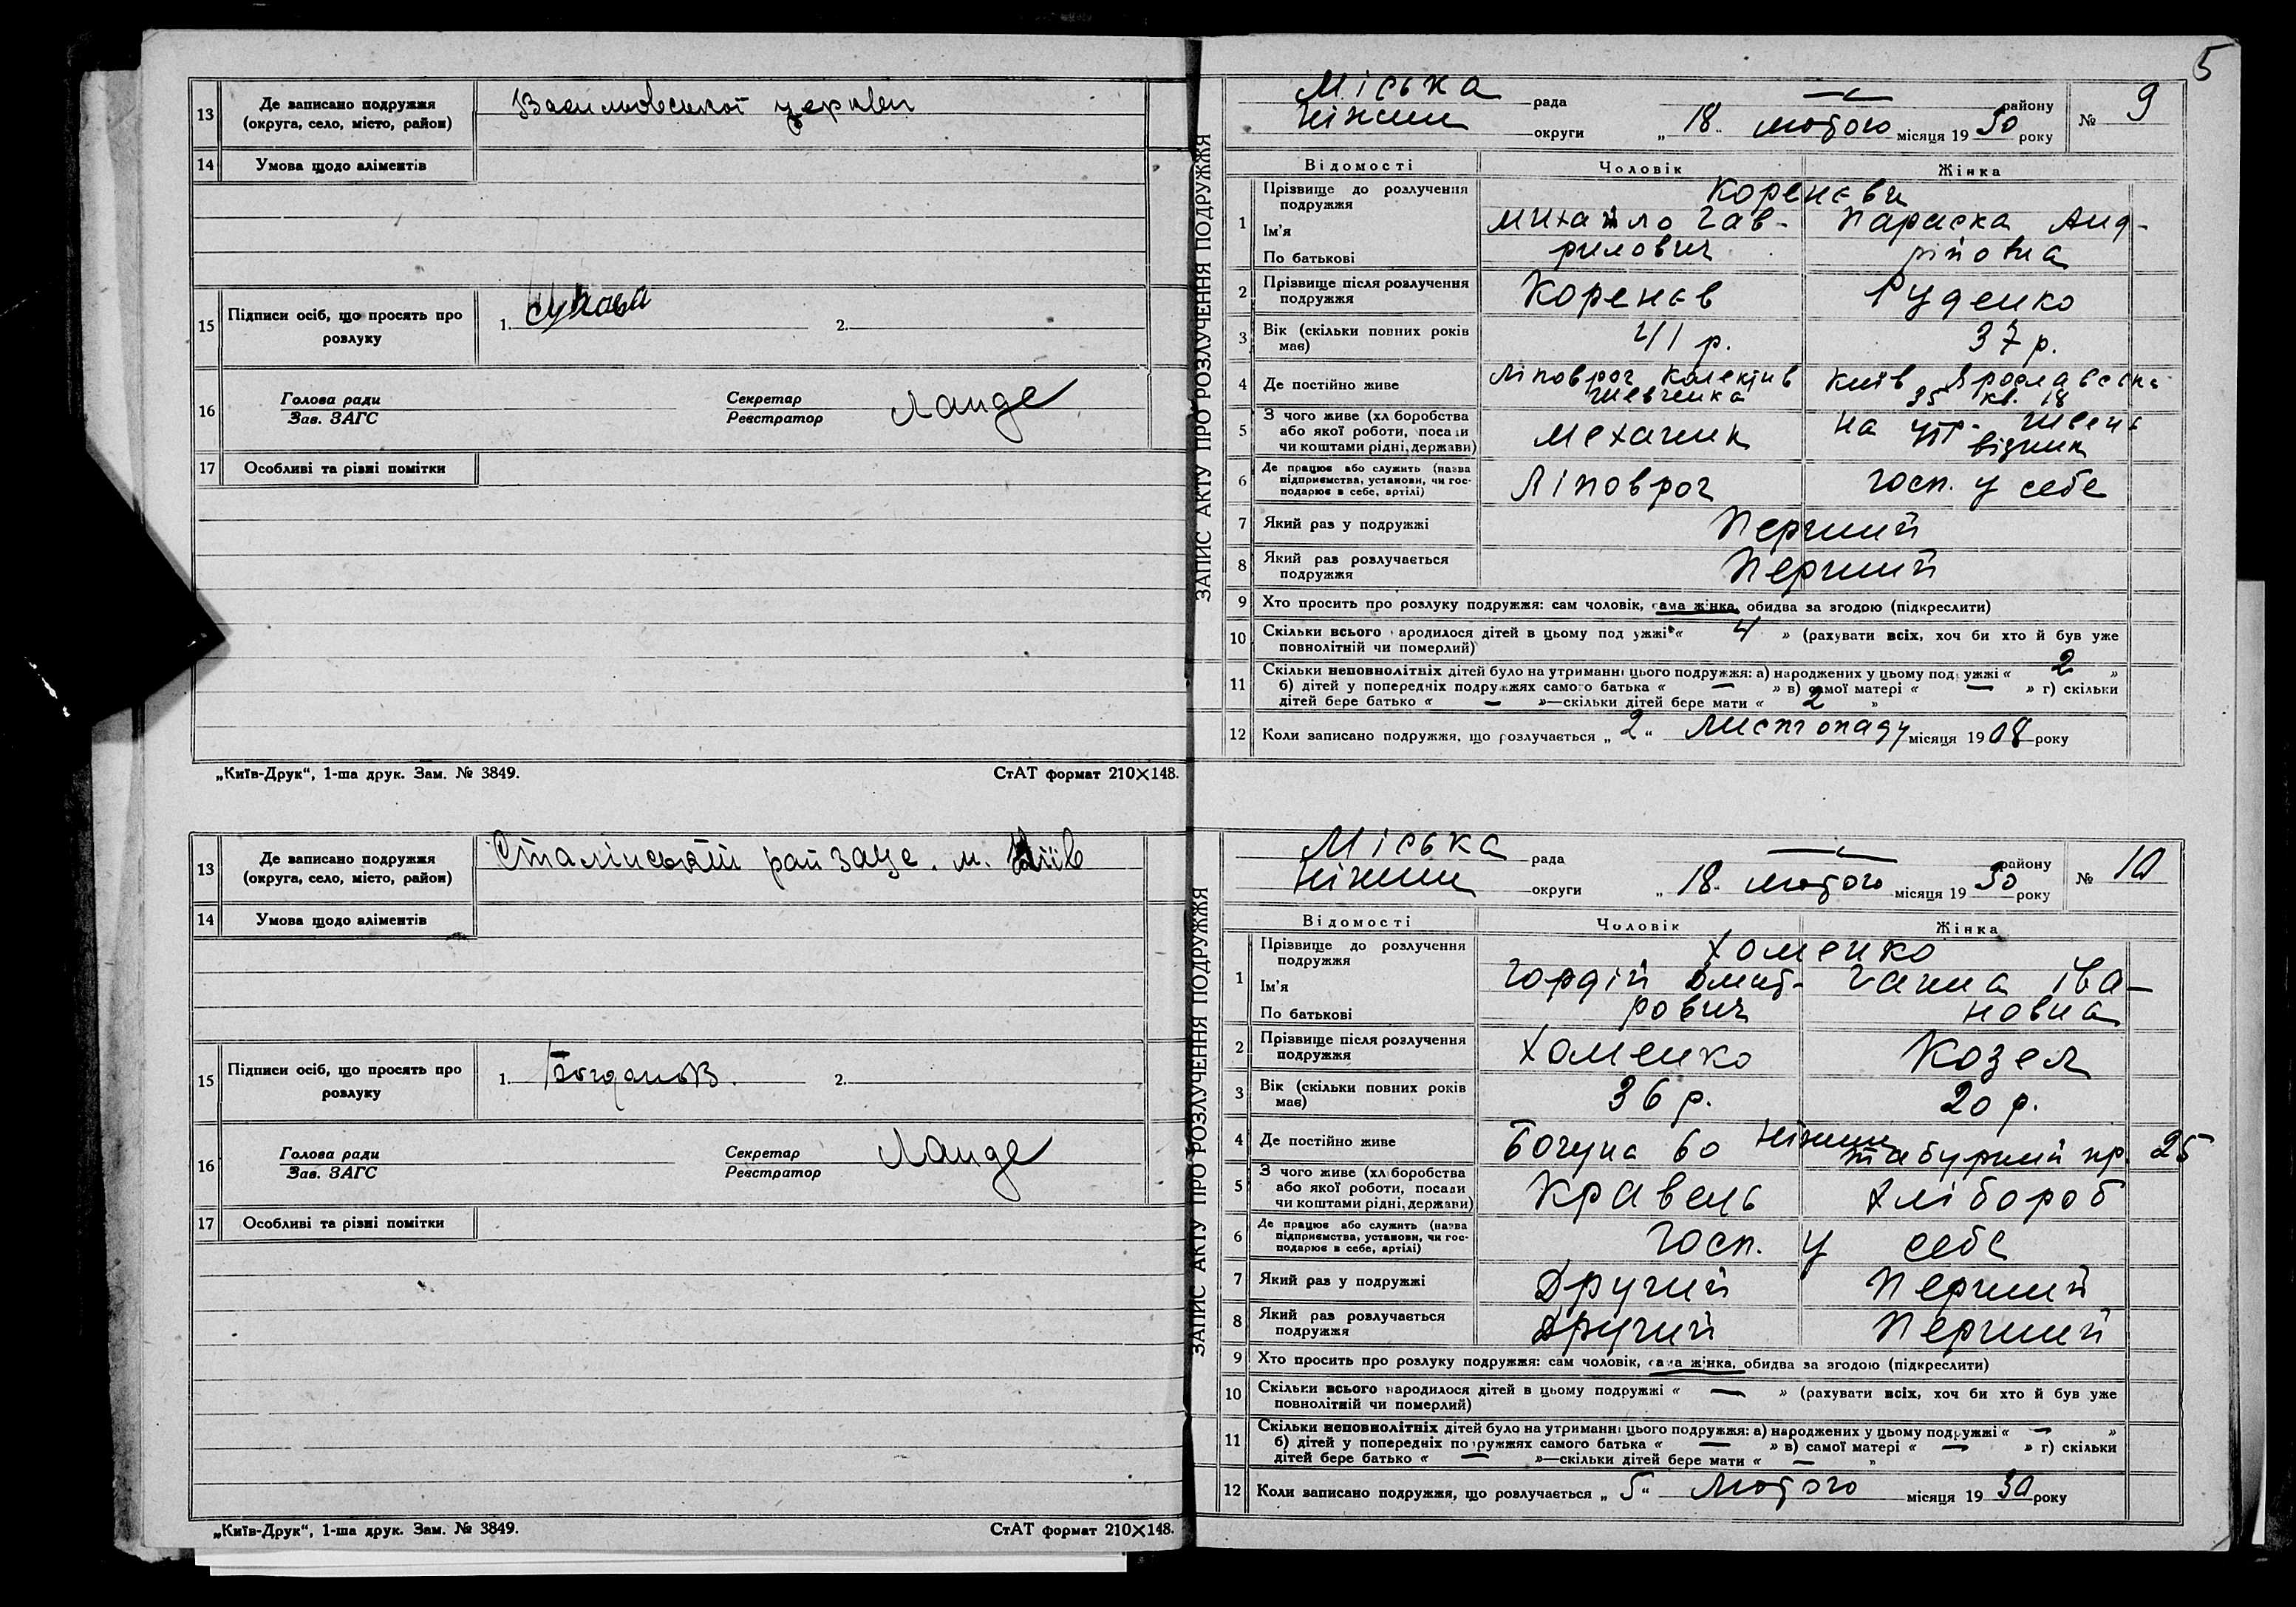 13 Де записано подружжя
(округа, село, місто, район)
Васильовської церкви
14 Умова щодо аліментів
15 Підписи осіб, що просять про
розлуку
1.
2.
16 Голова ради
Зав. ЗАГС
Секретар
Реєстратор
Ланде
17 Особливі та різні помітки
„Київ-Друк“, 1-ша друк. Зам. № 3849.
СтАТ формат 210×148.
13 Де записано подружжя
(округа, село, місто, район)
Сталінський рай загс. м. Київ
14 Умова щодо аліментів
15 Підписи осіб, що просять про
розлуку
1.
2.
16 Голова ради
Зав. ЗАГС
Секретар
Реєстратор
Ланде
17 Особливі та різні помітки
„Київ-Друк“, 1-ша друк. Зам. № 3849.
СтАТ формат 210×148.
5
ЗАПИС АКТУ ПРО РОЗЛУЧЕННЯ ПОДРУЖЖЯ
Міська рада — району
Ніжин округи „ 18 “ лютого місяця 1930 року
№ 9
Відомості Чоловік Жінка
1 Прізвище до розлучення
подружжя
Коренєви
Ім'я
Михайло Гав- Параска Анд-
По батькові
рилович ріївна
2 Прізвище після розлучення
подружжя
Коренєв Руденко
3 Вік (скільки повних років
має)
41 р. 37 р.
4 Де постійно живе
Ліповрог Колектив Київ Ярославська
Шевченка 35 кв. 18
5 З чого живе (хліборобства
або якої роботи, посади
чи коштами рідні, держави)
Механик На утр.
візник
6 Де працює або служить (назва
підприємства, установи, чи гос-
подарює в себе, артілі)
Ліповрог госп. у себе
7 Який раз у подружжі
Перший
8 Який раз розлучається
подружжя
Перший
9 Хто просить про розлуку подружжя: сам чоловік, сама жінка, обидва за згодою (підкреслити)
10 Скільки всього народилося дітей в цьому подружжі « 4 » (рахувати всіх, хоч би хто й був уже
повнолітній чи померлий)
11 Скільки неповнолітніх дітей було на утриманні цього подружжя: а) народжених у цьому подружжі « 2 »
б) дітей у попередніх подружжях самого батька « — » в) самої матері « — » г) скільки
дітей бере батько « — »—скільки дітей бере мати « 2 »
12 Коли записано подружжя, що розлучається „ 2 “ Листопаду місяця 1908 року
ЗАПИС АКТУ ПРО РОЗЛУЧЕННЯ ПОДРУЖЖЯ
Міська рада — району
Ніжин округи „ 18 “ лютого місяця 1930 року
№ 10
Відомості Чоловік Жінка
1 Прізвище до розлучення
подружжя
Хоменко
Ім'я
Гордій Дмит- Ганна Іва-
По батькові
рович новна
2 Прізвище після розлучення
подружжя
Хоменко Козел
3 Вік (скільки повних років
має)
36 р. 20 р.
4 Де постійно живе
Богуна 60 Ніжин пр. 25
5 З чого живе (хліборобства
або якої роботи, посади
чи коштами рідні, держави)
Кравець Хлібороб
6 Де працює або служить (назва
підприємства, установи, чи гос-
подарює в себе, артілі)
Госп. у себе
7 Який раз у подружжі
Другий Перший
8 Який раз розлучається
подружжя
Другий Перший
9 Хто просить про розлуку подружжя: сам чоловік, сама жінка, обидва за згодою (підкреслити)
10 Скільки всього народилося дітей в цьому подружжі « — » (рахувати всіх, хоч би хто й був уже
повнолітній чи померлий)
11 Скільки неповнолітніх дітей було на утриманні цього подружжя: а) народжених у цьому подружжі « — »
б) дітей у попередніх подружжях самого батька « — » в) самої матері « — » г) скільки
дітей бере батько « — »—скільки дітей бере мати « — »
12 Коли записано подружжя, що розлучається „ 5 “ Лютого місяця 1930 року